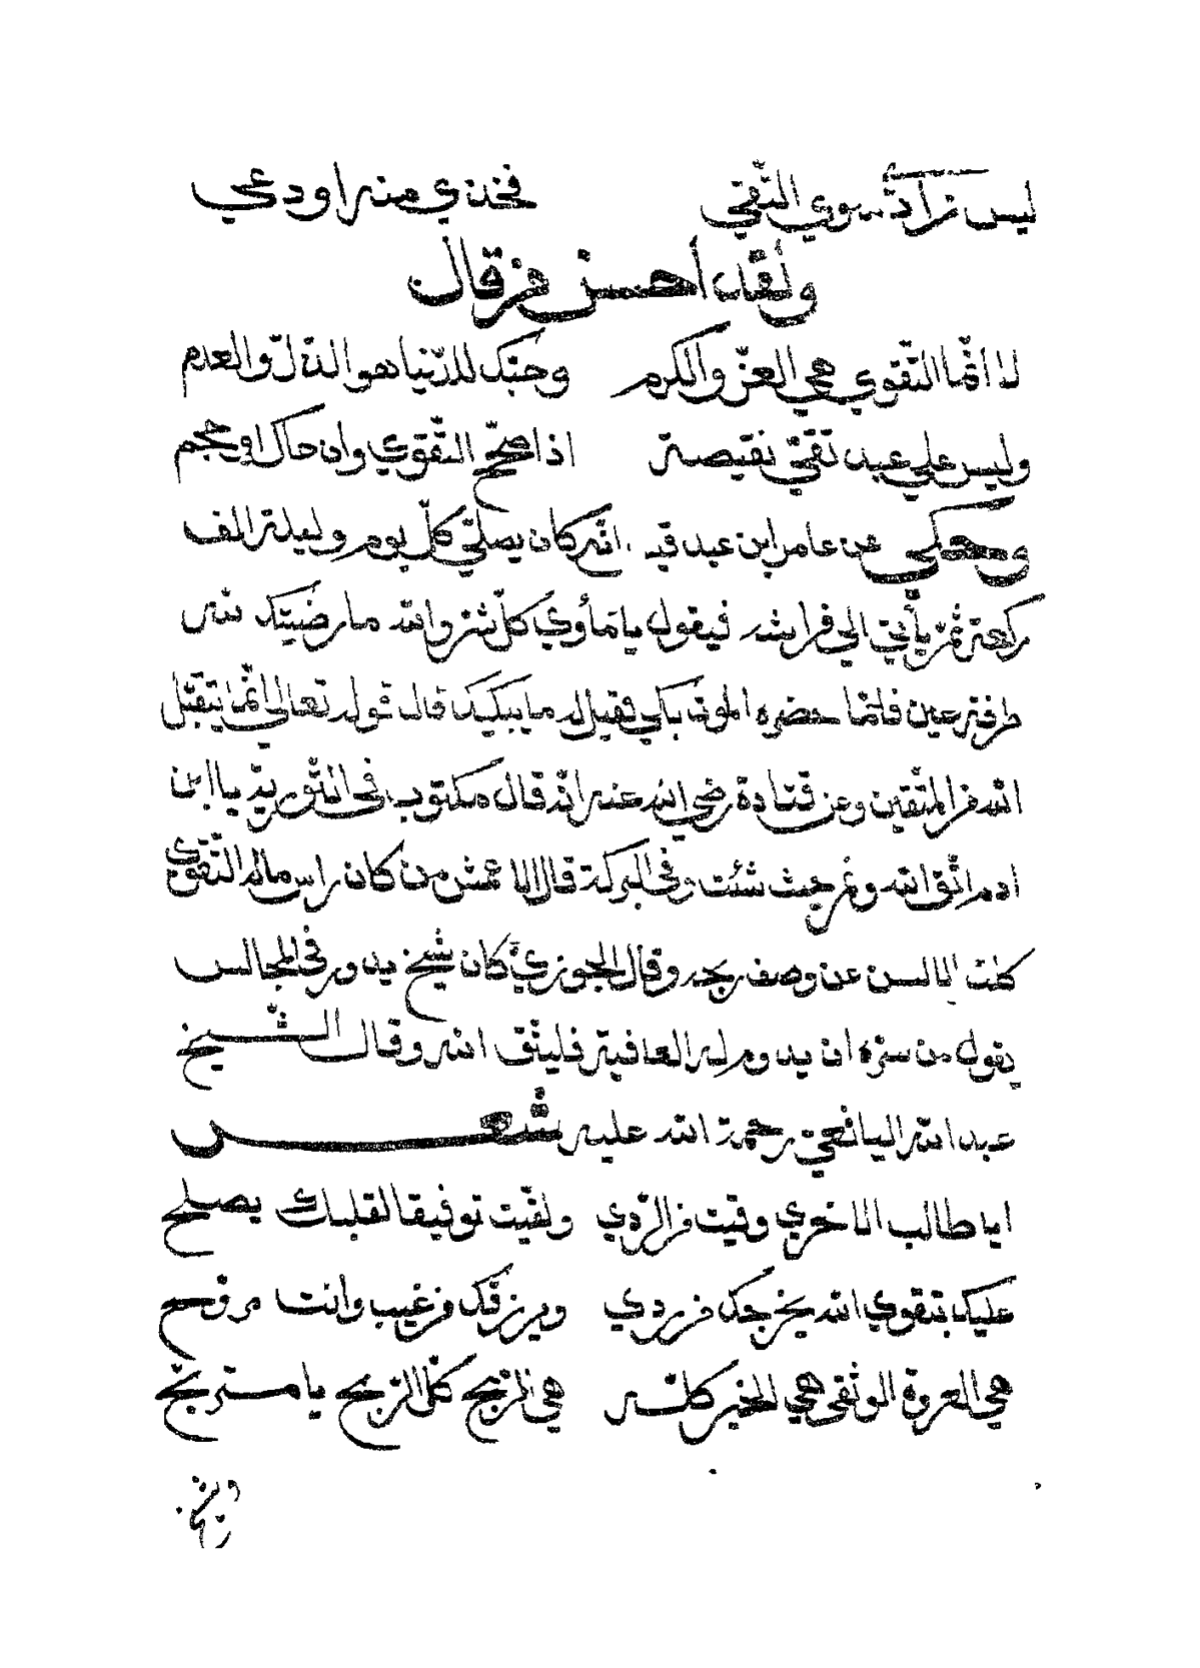 ليس زادٌ سوي التّقي فخذي منه او دعي
ولقد أحسن من قال
الا انّما التّقوي هي العزّ والكرم وحبّك للدّنيا هو الذلّ والعدم
وليس علي عبد تقيّ نقيصة اذا صحّح التّقوي وان حاك او حجم
وحكي عن عامر ابن عبد قيس انّه كان يصلّي كلّ يوم وليلة الف
ركعة ثمّ يأتي الي فراشه فيقول يا مأوي كلّ شر والله ما رضيتك لله
طرفة عين فلمّا حضره الموت بكي فقيل له ما يبكيك قال قوله تعالي انّما يتقبّل
الله من المتّقين وعن قتادة رضي الله عنه انّه قال مكتوب في التّورية يا ابن
ادم اتّق الله ونم حيث شئت وفي البركة قال الاعمش من كان راس ماله التّقوي
كلت الالسن عن وصف ربحه وقال الجوزيّ كان شيخ يدور في المجالس
يقول من سرّه ان يدوم له العافية فليتّق الله وقال الشّيخ
عبد الله اليافعي رحمة الله عليه شعر
ايا طالب الاخري وقيت من الرّدي ولقّيت توفيقا لقلبك يصلح
عليك بتقوي الله يخرجك من ردي ويرزقك من غيب وانت مروّح
هي العروة الوثقي هي الخير كلّه هي الرّبح كلّ الرّبح يا متربّح